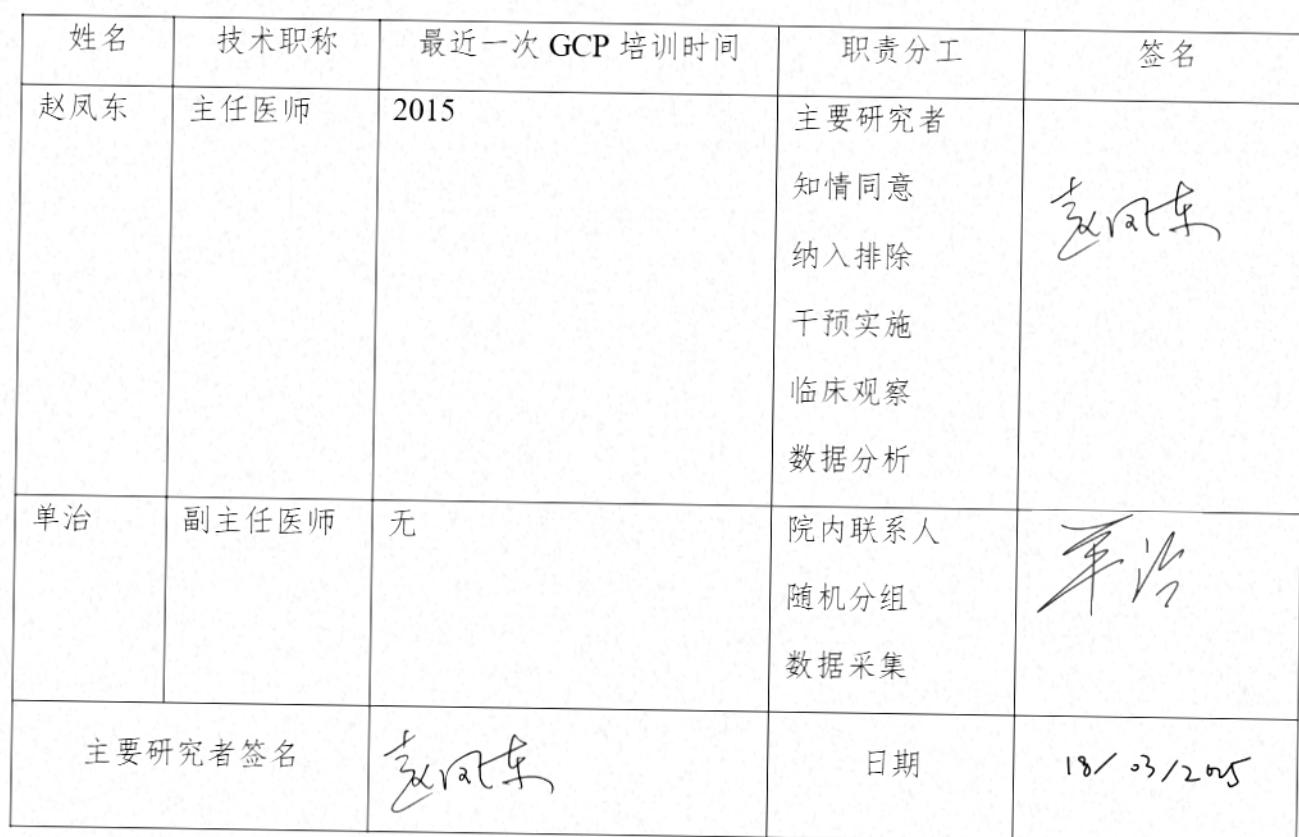 姓名 技术职称 最近一次 GCP 培训时间 职责分工 签名
赵凤东 主任医师 2015 主要研究者
知情同意
赵凤东
纳入排除
干预实施
临床观察
数据分析
单治 副主任医师 无 院内联系人
单治
随机分组
数据采集
主要研究者签名 赵凤东 日期 18/03/2025